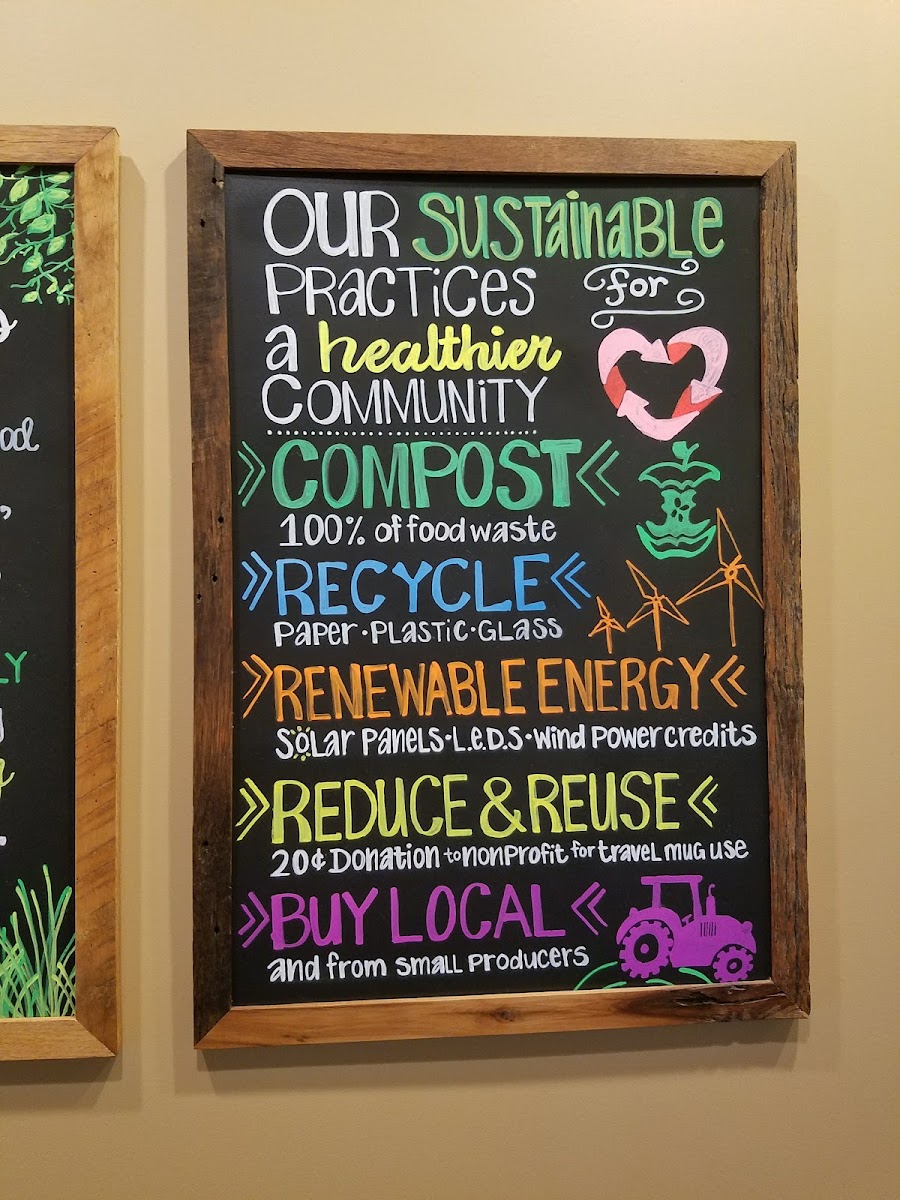 OUR SUSTAINABLE
PRACTICES for
a healthier
COMMUNITY
COMPOST
100% of food waste
RECYCLE
PAPER · PLASTIC · GLASS
RENEWABLE ENERGY
SOLAR PANELS · L.e.D.S · WIND POWER credits
REDUCE & REUSE
20¢ DONATION to NONPROFIT for TRAVEL MUG USE
BUY LOCAL
and from SMALL PRODUCERS
LY